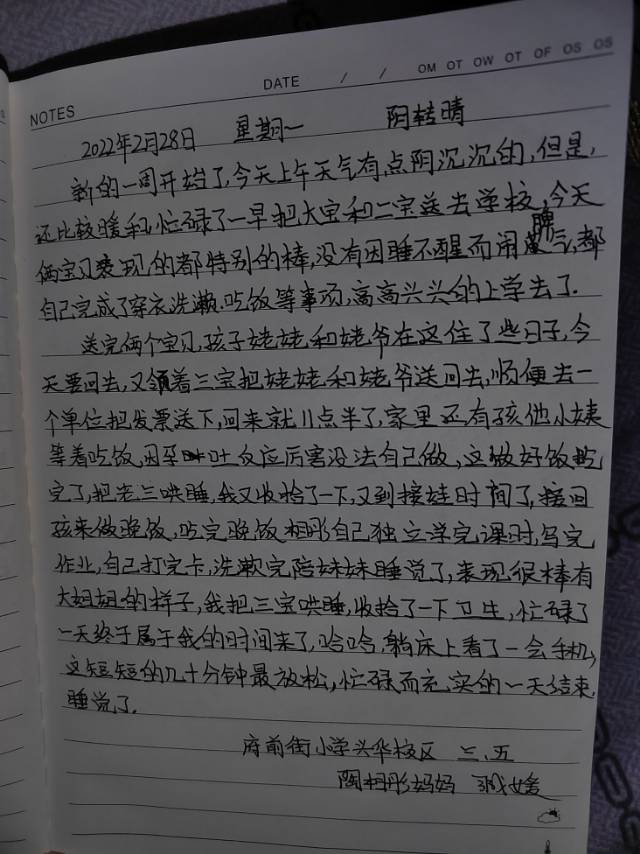 NOTES
DATE / / OM OT OW OT OF OS OS
2022年2月28日 星期一 阴转晴
新的一周开始了,今天上午天气有点阴沉沉的,但是,
还比较暖和,忙碌了一早把大宝和二宝送去学校,今天
俩宝贝表现的都特别的棒,没有因睡不醒而闹脾气,都
自己完成了穿衣洗漱.吃饭等事项,高高兴兴的上学去了.
送完俩个宝贝,孩子姥姥和姥爷在这住了些日子,今
天要回去,又领着三宝把姥姥和姥爷送回去,顺便去一
个单位把发票送下,回来就11点半了,家里还有孩他小姨
等着吃饭,因孕吐反应厉害没法自己做,这做好饭吃
完了,把老三哄睡,我又收拾了一下,又到接娃时间了,接回
孩来做晚饭,吃完晚饭相彤自己独立学完课时,写完
作业,自己打完卡,洗漱完陪妹妹睡觉了,表现很棒有
大姐姐的样子,我把三宝哄睡,收拾了一下卫生,忙碌了
一天终于属于我的时间来了,哈哈,躺床上看了一会手机,
这短短的几十分钟最放松,忙碌而充实的一天结束,
睡觉了.
府前街小学头华校区 三.五
陶相彤妈妈 媛